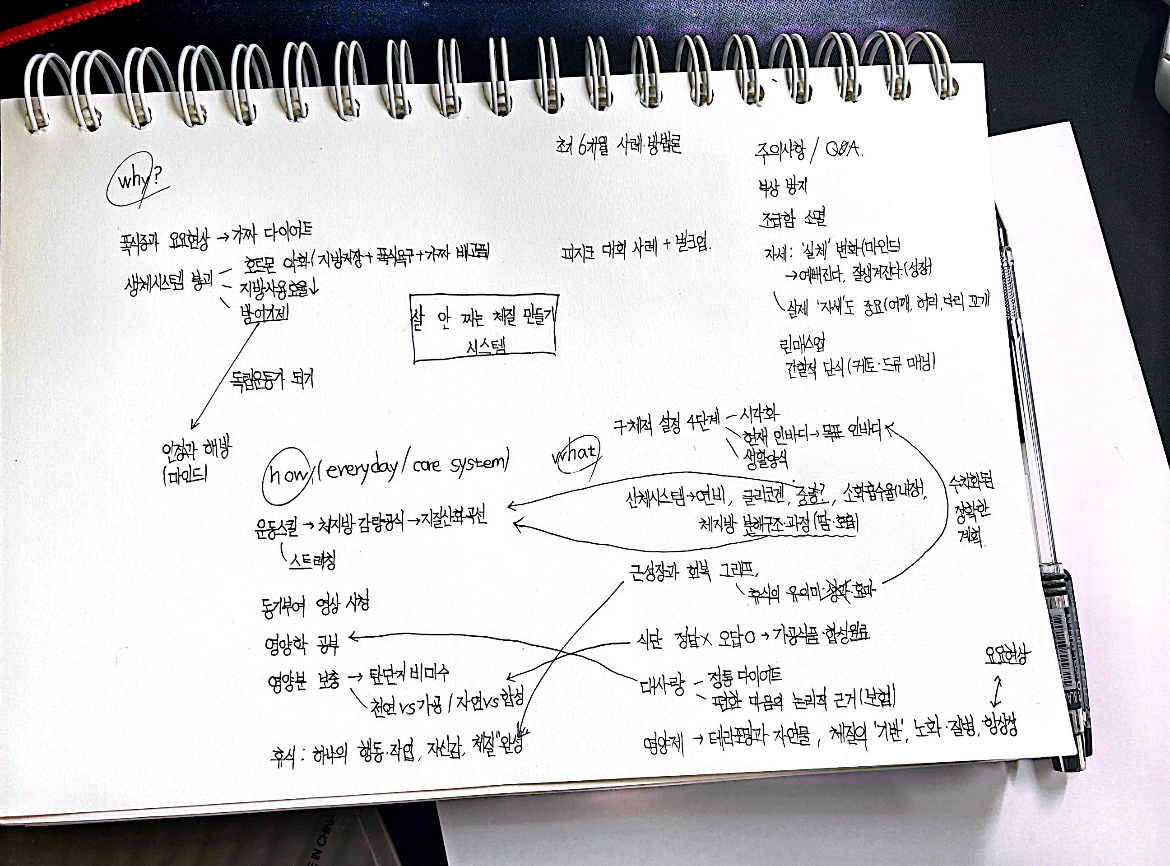 why?
폭식증과 요요현상 → 가짜 다이어트
생체시스템 붕괴 - 호르몬 악화(지방저장 + 폭식욕구 + 가짜 배고픔
- 지방사용효율↓
- 방어기제
독립운동가 되기
인정과 해방
(마인드)
최저 6개월 사례·방법론
피지크 대회 사례 + 벌크업.
살 안 찌는 체질 만들기
시스템
주의사항 / Q&A.
부상 방지
조급함 소멸
자세: '실체' 변화(마인드)
→ 예뻐진다, 잘생겨진다.(성장)
실제 '자세'도 중요(어깨, 허리, 다리 꼬기
린매스업
간헐적 단식(키토·드류 매닝)
how(everyday/core system)
운동스킬 → 체지방 감량공식 → 지질산화곡선
스트레칭
동기부여 영상 시청
영양학 공부
영양분 보충 → 탄단지비미수
천연vs가공 / 자연vs합성
휴식 : 하나의 행동·작업, 자신감, 체질"완성"
what
구체적 설정 4단계 - 시각화
현재 인바디 → 목표 인바디
생활양식
신체시스템 → 연비, 글리코겐, 근량?, 소화흡수율(내장),
체지방 분해구조·과정(땀·호흡)
수치화된
정확한
계획.
근성장과 회복 그래프,
휴식의 유의미·효과
식단 정답X 오답O → 가공식품·합성원료
대사량 - 정통 다이어트
- 편한 마음의 논리적 근거(보험)
요요현상
영양제 → 테라포밍과 자연물, 체질의 '기반', 노화·질병, 항상성
IN CHINA